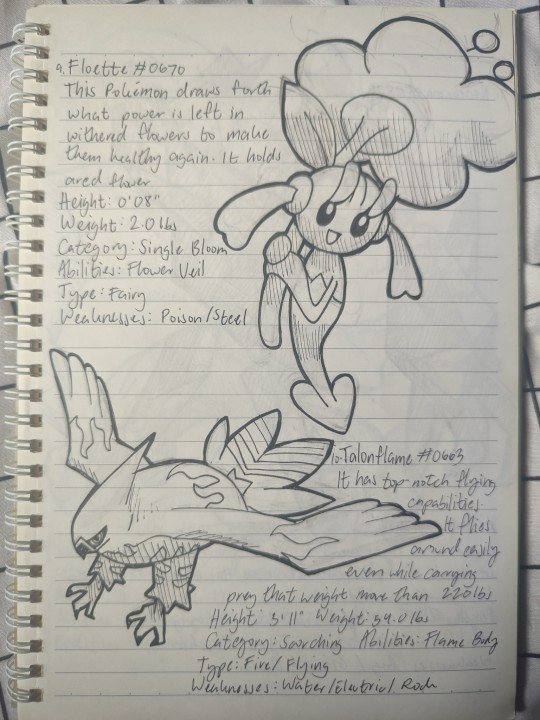 9. Floette #0670
This Pokémon draws forth
what power is left in
withered flowers to make
them healthy again. It holds
a red flower
Height: 0'08"
Weight: 2.0 lbs
Category: Single Bloom
Abilities: Flower Veil
Type: Fairy
Weaknesses: Poison/Steel
10. Talonflame #0663
It has top-notch flying
capabilities.
It flies
around easily
even while carrying
prey that weight more than 220lbs
Height: 3'11" Weight: 54.0 lbs
Category: Scorching Abilities: Flame Body
Type: Fire/Flying
Weaknesses: Water/Electric/Rock